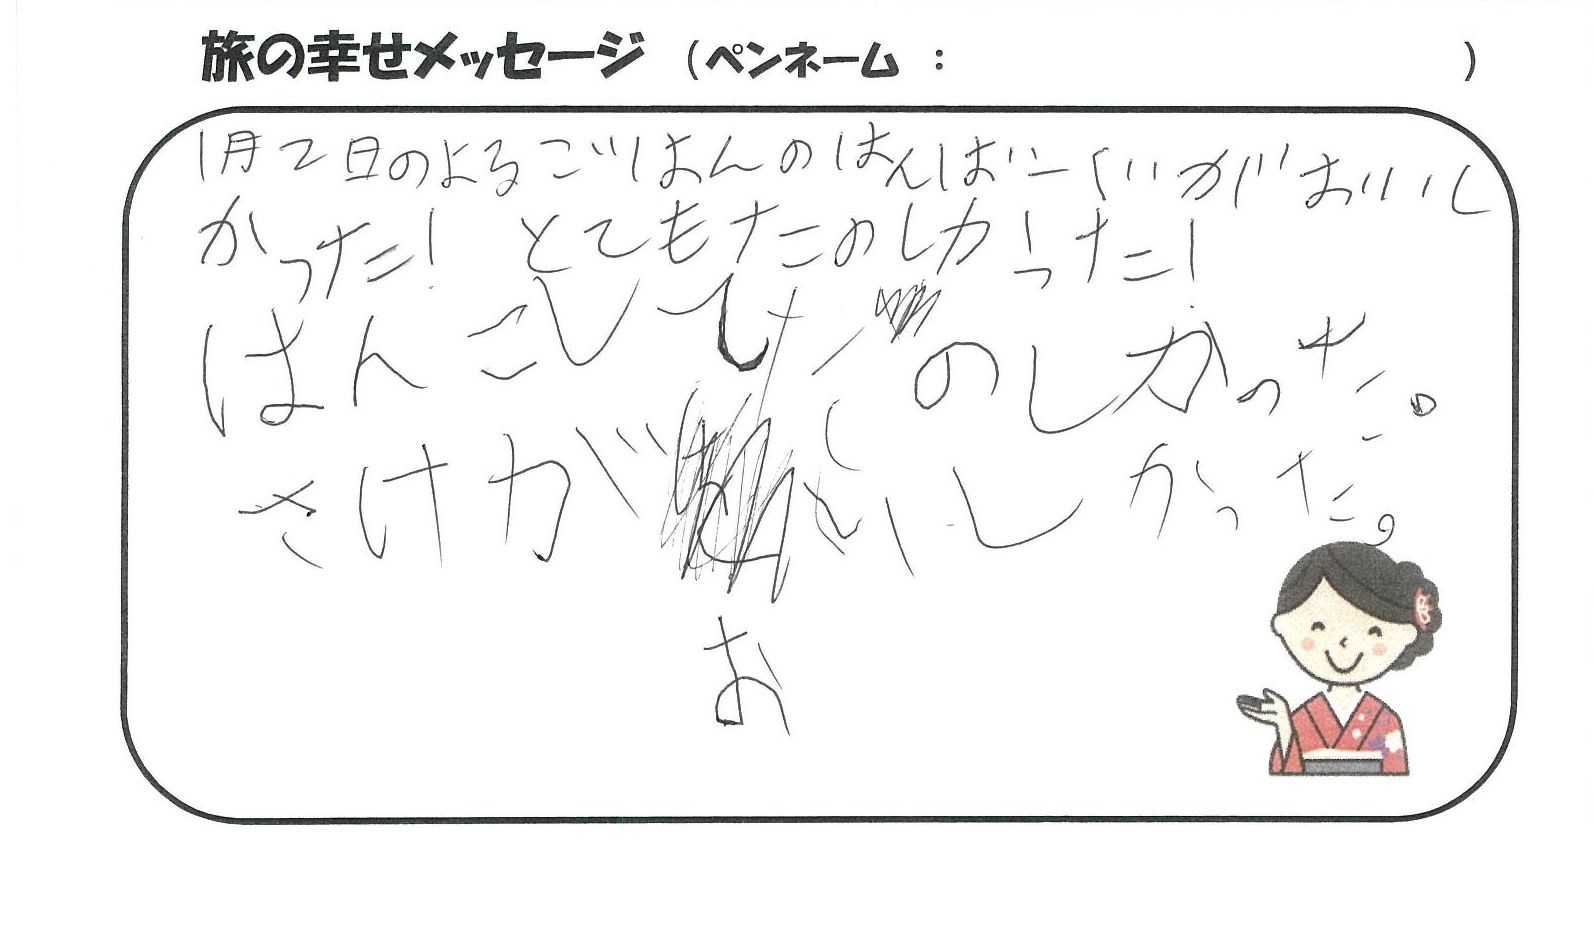 旅の幸せメッセージ (ペンネーム : )
1月2日のよるごはんのはんばーぐがおいし
かった! とてもたのしかった!
はんこ のしかった。
さけが いしかった。
お